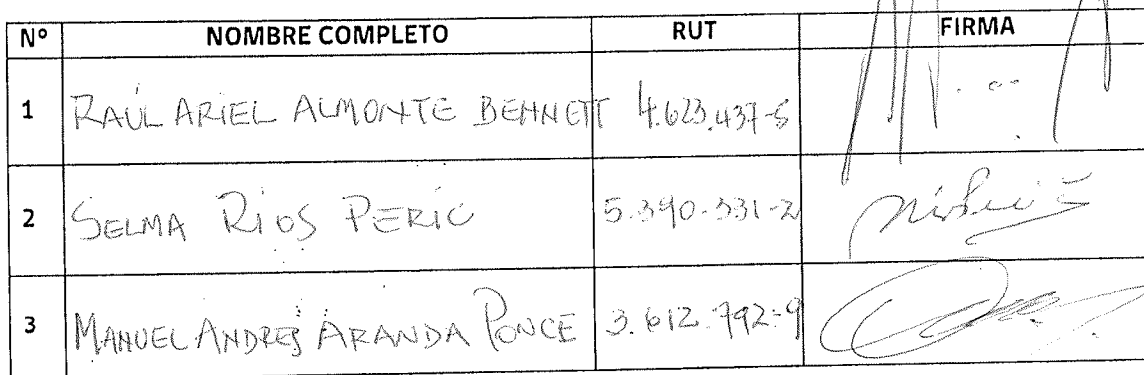 Nº NOMBRE COMPLETO RUT FIRMA
1 RAÚL ARIEL ALMONTE BENNETT 4.623.437-5
2 SELMA RIOS PERIC 5.390.331-2
3 MANUEL ANDRES ARANDA PONCE 3.612.792-9